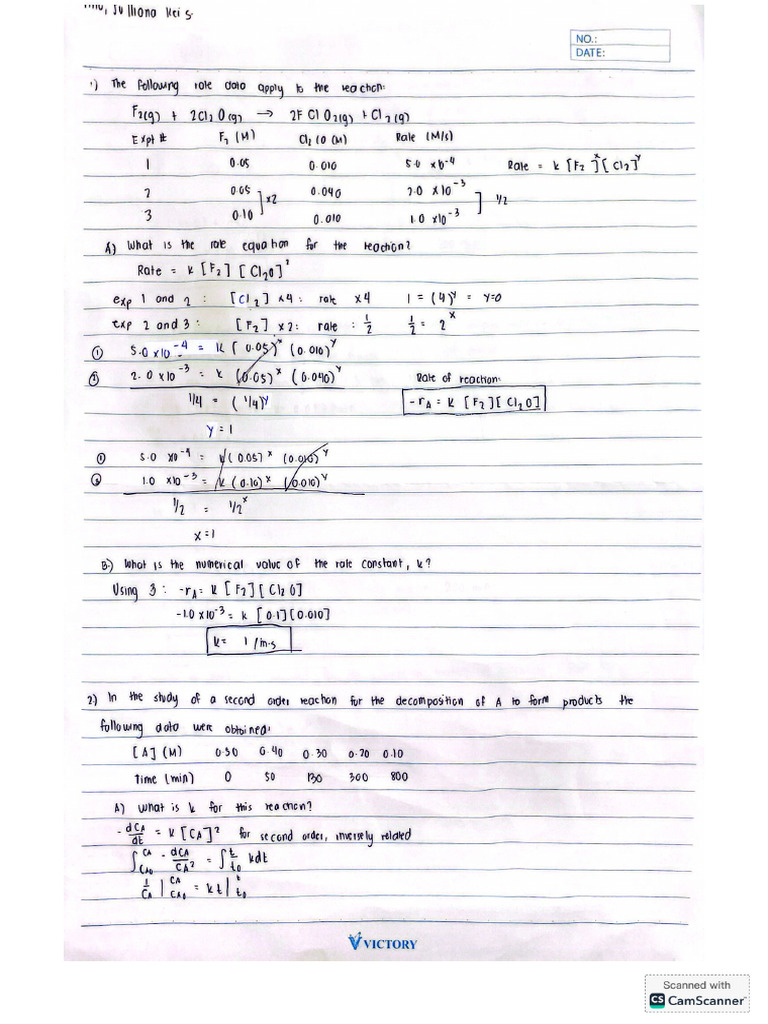 Julliana Kei S.
NO.:
DATE:
1) The following rate data apply to the reaction:
F2(g) + 2Cl2O(g) → 2FClO2(g) + Cl2(g)
Expt # F2 (M) Cl2O (M) Rate (M/s)
1 0.05 0.010 5.0 x10^-4 Rate = k [F2]^x [Cl2]^y
2 0.05 0.040 2.0 x10^-3
3 0.10 ] x2 0.010 1.0 x10^-3 ] 1/2
A) What is the rate equation for the reaction?
Rate = k [F2] [Cl2O]
exp 1 and 2 : [Cl2] x4 : rate x4 1 = (4)^y = y=0
exp 2 and 3 : [F2] x2 : rate : 1/2 1/2 = 2^x
① 5.0 x10^-4 = k (0.05)^x (0.010)^y
② 2.0 x10^-3 = k (0.05)^x (0.040)^y Rate of reaction:
1/4 = (1/4)^y -rA = k [F2][Cl2O]
y = 1
① 5.0 x10^-4 = k (0.05)^x (0.010)^y
③ 1.0 x10^-3 = k (0.10)^x (0.010)^y
1/2 = 1/2^x
x = 1
B.) What is the numerical value of the rate constant, k?
Using 3 : -rA = k [F2][Cl2O]
-1.0 x10^-3 = k [0.1][0.010]
k = 1 /m·s
2) In the study of a second order reaction for the decomposition of A to form products the
following data were obtained:
[A] (M) 0.50 0.40 0.30 0.20 0.10
Time (min) 0 50 130 300 800
A) What is k for this reaction?
-dCA/dt = k [CA]² for second order, inversely related
∫CA0^CA -dCA/CA² = ∫t0^t kdt
1/CA |CA0^CA = kt |t0^t
VICTORY
Scanned with
CS CamScanner